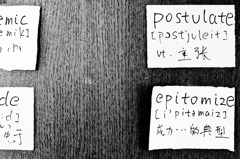 emic
emik]
postulate
['pɔstjuleit]
vt. 主张
de
:d]
epitomize
[i'pitəmaiz]
成为…的典型